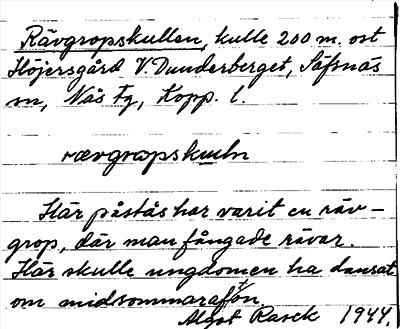 Rävgropskullen, kulle 200 m. ost
Höjersgård V. Dunderberget, Säfsnäs
sn, Nås Fg, Kopp. l.
rævgrɷpskuuln
Här påstås har varit en räv-
grop, där man fångade rävar.
Här skulle ungdomen ha dansat
om midsommarafton.
Algot Rasck 1944.